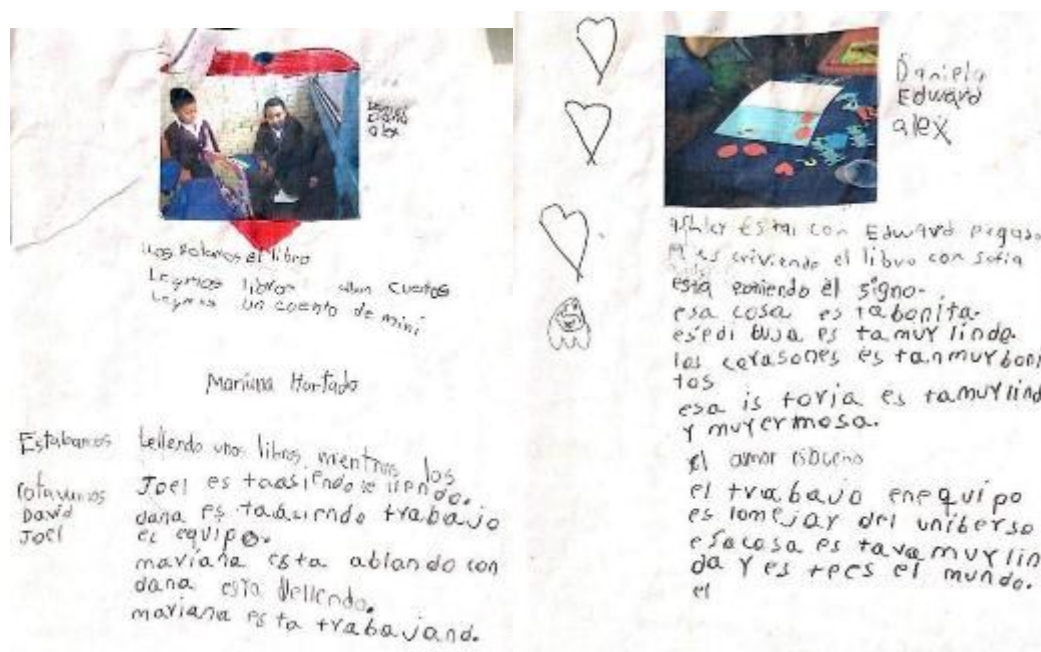 Daniel
Diana
alex
nos Rotamos el libro
Leymos libros cuentos
Leymos un cuento de mini
Mariana Hurtado
Estabamos Lellendo unos libros mientras los
rotavamos
David
Joel
Joel es taasiendo
dana es taasiendo trabajo
el equipo.
mariana esta ablando con
dana esta lellendo.
mariana es ta trabajand.
Daniela
Edward
alex
ashley Estai con Edward pegado
es criviendo el libro con sofia
está poniendo el signo.
esa cosa es tabonita.
esedi buja es tamuy linda.
los corasones es tanmuyboni
tos
esa is toria es tamuylind
y muyermosa.
el amor esbueno
el trabajo enequipo
es lomejar del uniberso
esacosa es tava muylin
da y es tees el mundo.
el